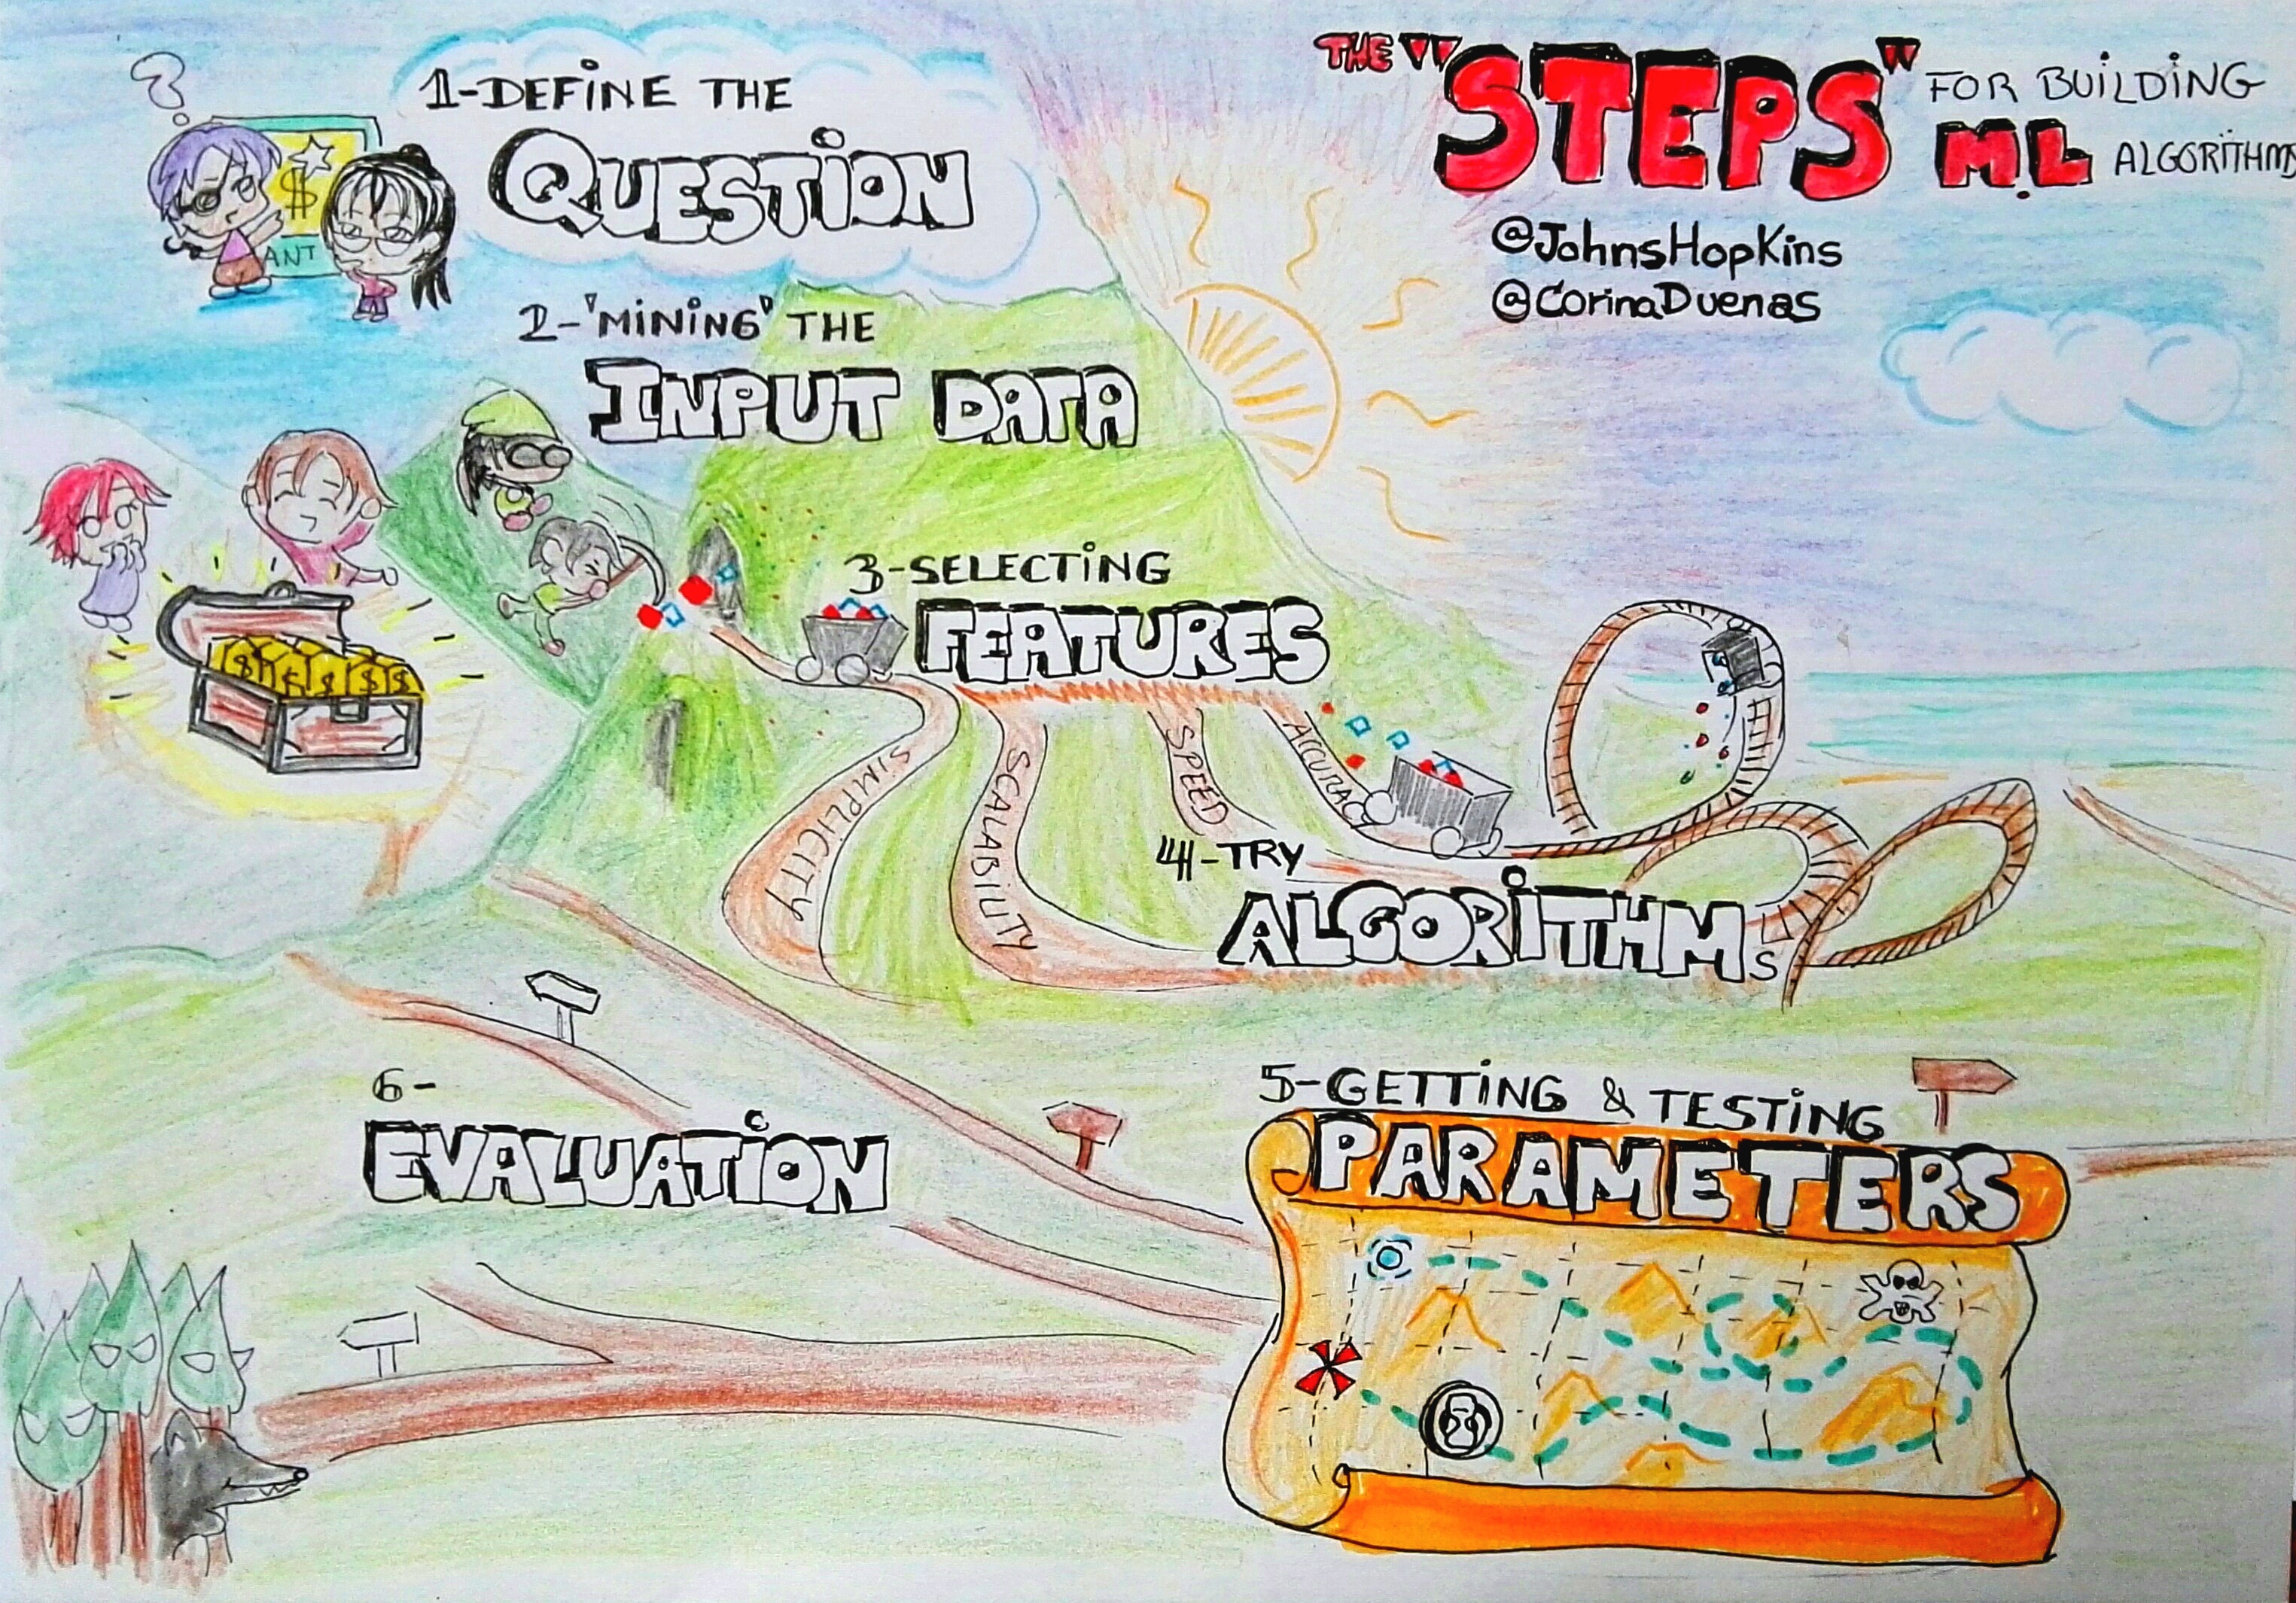 THE "STEPS" FOR BUILDING
M.L ALGORITHMS
@JohnsHopkins
@CorinaDuenas
?
1-DEFINE THE
QUESTION
$
ANT
2-"MINING" THE
INPUT DATA
3-SELECTING
FEATURES
SIMPLICITY
SCALABILITY
SPEED
ACCURAC
$ $ $ $
4-TRY
ALGORITHMS
5-GETTING & TESTING
PARAMETERS
6-
EVALUATION